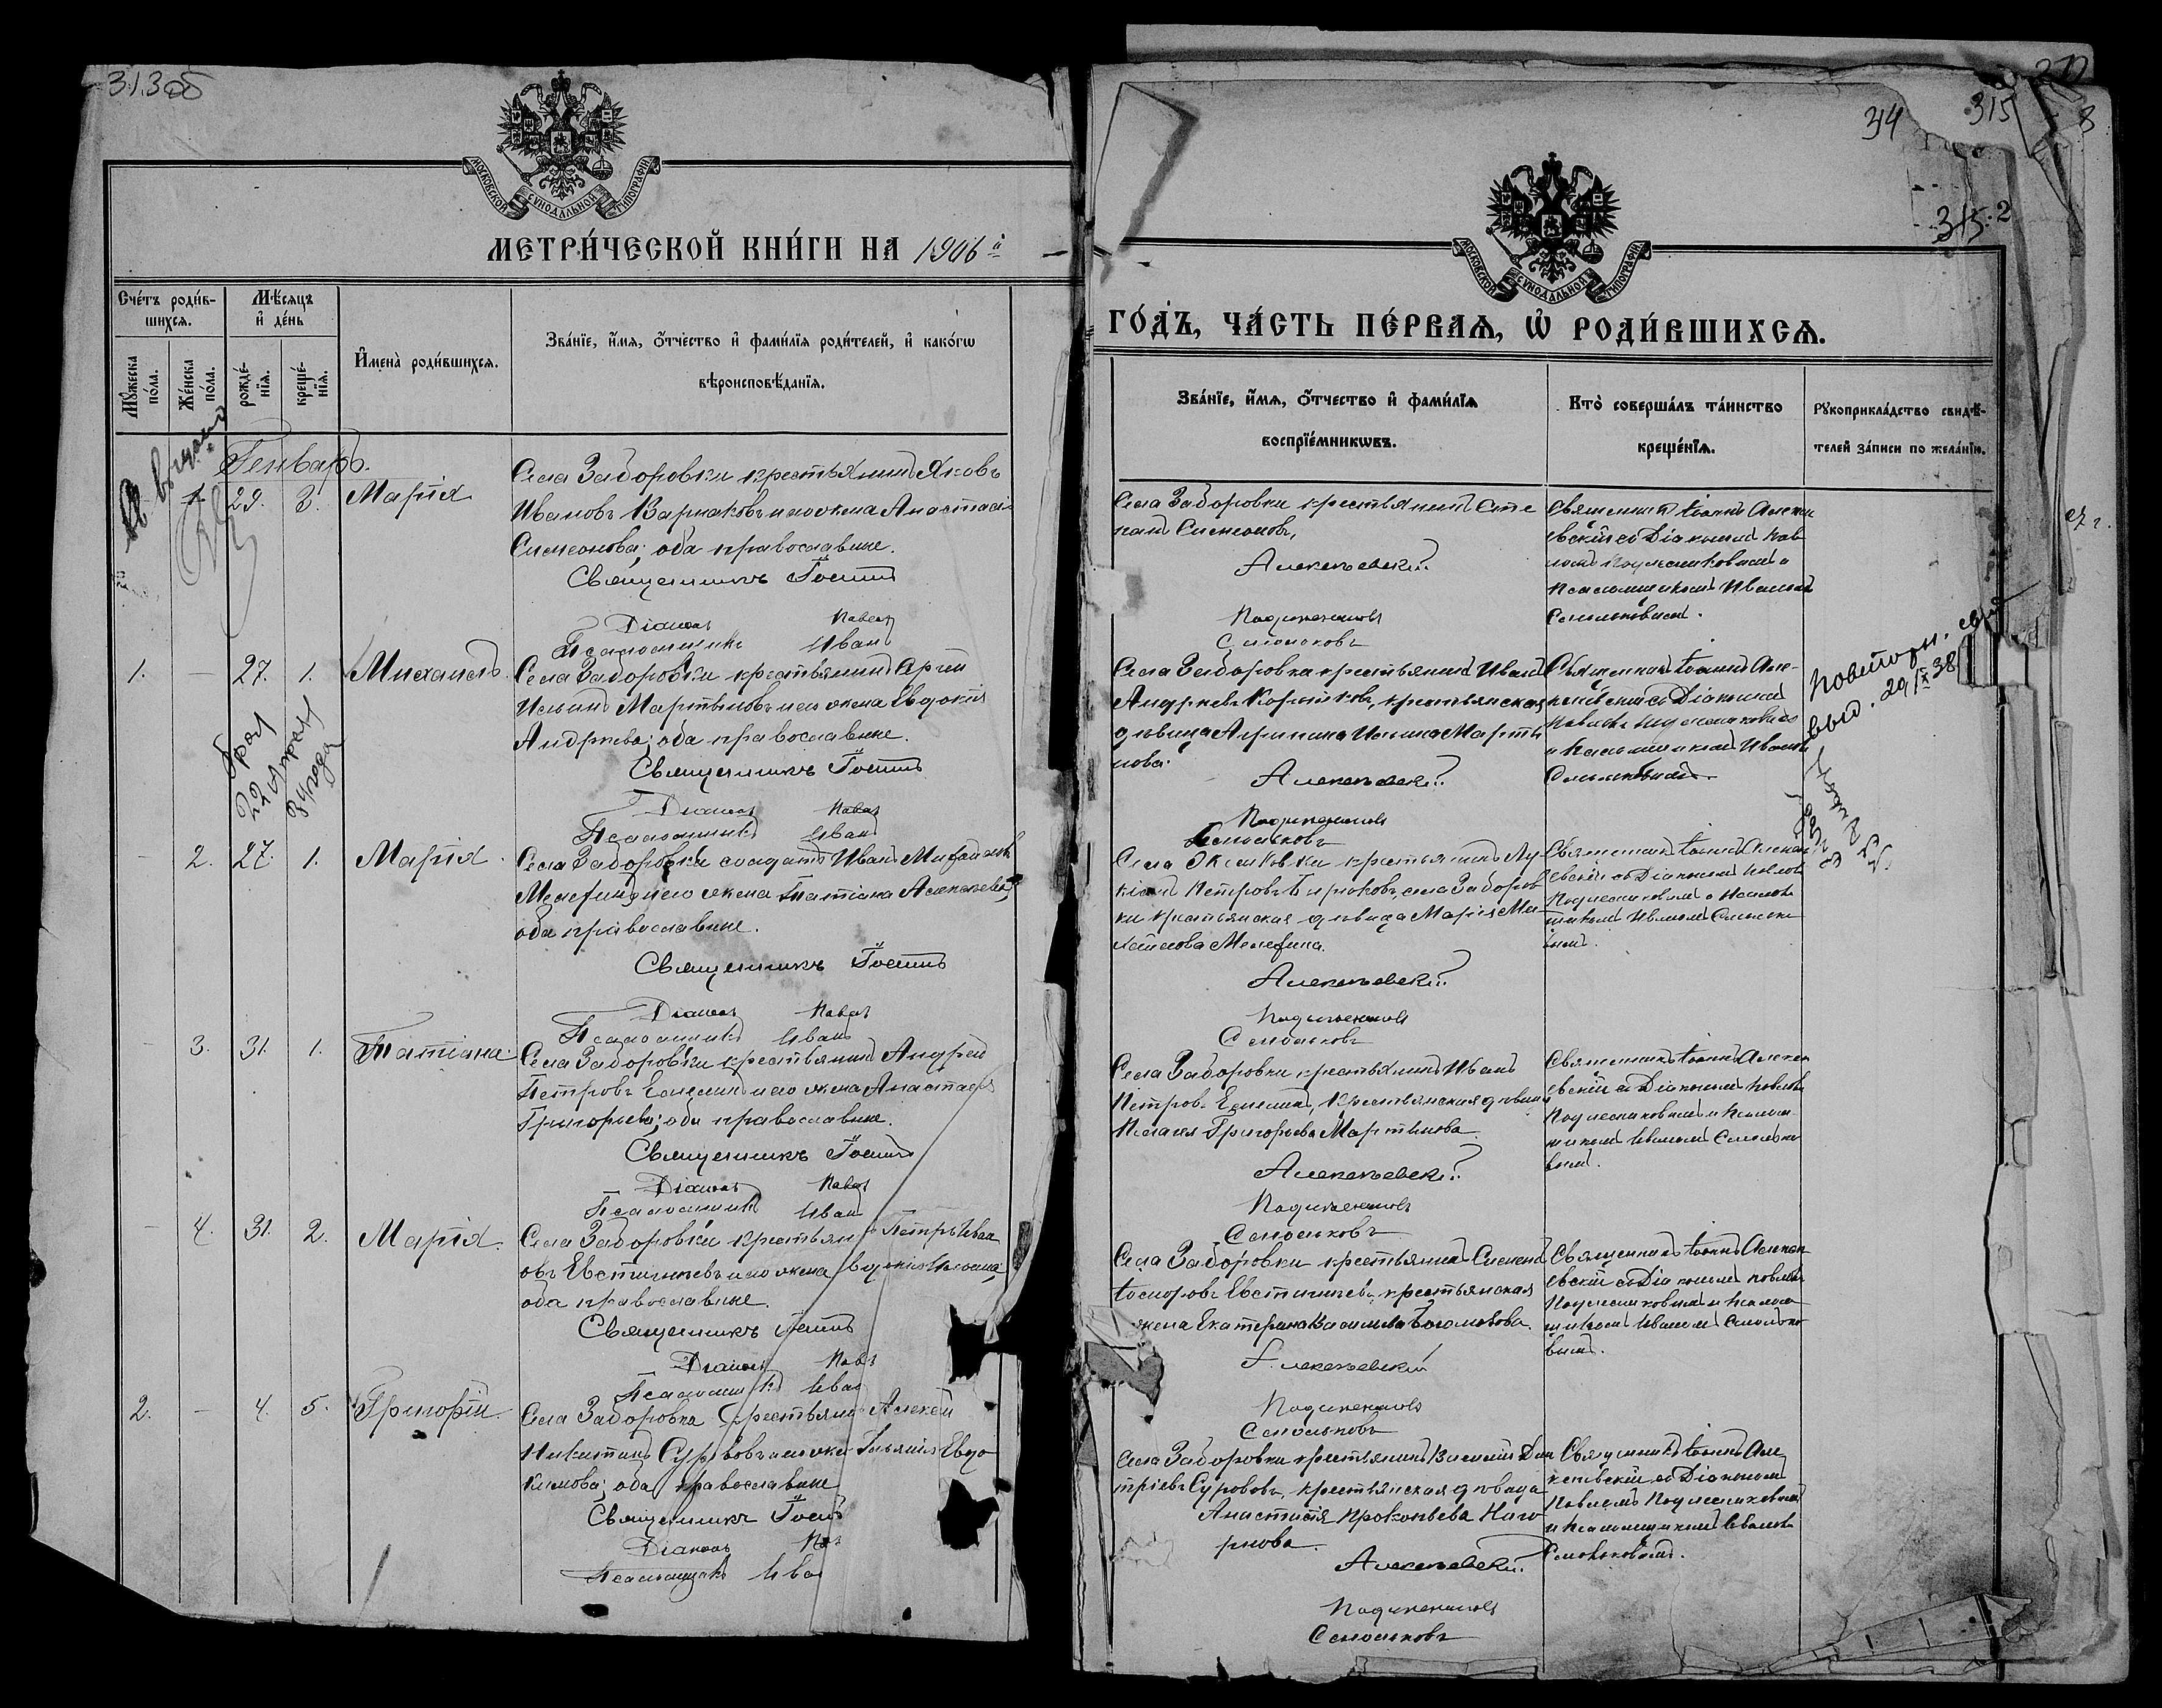 313об
МОСКОВСКОЙ СѴНОДАЛЬНОЙ ТИПОГРАФІИ
МЕТРИ́ЧЕСКОЙ КНИ́ГИ НА 1906й
Сче́тъ роди́в-
шихсѧ.
Мѣ́сяцъ
и҆ де́нь
Мꙋ́жеска по́ла.
Же́нска по́ла.
рожде́-нїѧ.
креще́-нїѧ.
И҆мена̀ роди́вшихсѧ.
Зва́нїе, и҆́мѧ, ѻ҆́тчество и҆ фами́лїѧ роди́телей, и҆ како́гѡ
вѣроисповѣ́данїѧ.
Генварь.
1. 29. 3. Марія
Села Заборовки крестьянинъ Яковъ
Ивановъ Варнаковъ и его жена Анастасія
Симеонова; оба православные.
Священникъ Іоаннъ
Діаконъ Павелъ
Псаломщикъ Иванъ
1. – 27. 1. Михаилъ.
Села Заборовки крестьянинъ Сергѣй
Ильинъ Мартыновъ и его жена Евдокія
Андреева; оба православные.
Священникъ Іоаннъ
Діаконъ Павелъ
Псаломщикъ Иванъ
брак
22
34 года
– 2. 27. 1. Марія.
Села Заборовки солдатъ Иванъ Михайловъ
и его жена Татіана Алексеева,
оба православные.
Священникъ Іоаннъ
Діаконъ Павелъ
Псаломщикъ Иванъ
– 3. 31. 1. Татіана
Села Заборовки крестьянинъ Андрей
Петровъ Емелинъ и его жена Анастасія
Григорьева; оба православные.
Священникъ Іоаннъ
Діаконъ Павелъ
Псаломщикъ Иванъ
– 4. 31. 2. Марія.
Села Заборовки крестьянинъ Петръ Иван
овъ Евстигнеевъ и его жена
оба православные.
Священникъ Іоаннъ
Діаконъ Павелъ
Псаломщикъ Иванъ
2. – 4. 5. Григорій.
Села Заборовка крестьянинъ Алексѣй
Никитинъ Суровъ Евдо
кимова; оба православные
Священникъ Іоаннъ
Діаконъ
Псаломщикъ Иван
34
315
315
2
МОСКОВСКОЙ СѴНОДАЛЬНОЙ ТИПОГРАФІИ
ГО́ДЪ, ЧА́СТЬ ПЕ́РВАѦ, Ѡ҆ РОДИ́ВШИХСѦ.
Зва́нїе, и҆́мѧ, ѻ҆́тчество и҆ фами́лїѧ
воспрїе́мникѡвъ.
Кто̀ соверша́лъ та́инство
креще́нїѧ.
Рꙋкоприкла́дство свидѣ́-
телей за́писи по жела́нїю.
Села Заборовки крестьянинъ Сте
панъ Симеоновъ,
Алексѣевскій
Подлесниковъ
Смольковъ
Священникъ Іоаннъ Алексе
евскій съ Діакономъ Пав
ломъ Подлесниковымъ и
Псаломщикомъ Иваномъ
Смольковымъ.
Села Заборовка крестьянинъ Иванъ
Андреевъ крестьянская
девица Агрипина Ильина Марты
нова.
Алексѣевскій
Подлесниковъ
Смольковъ
Священникъ Іоаннъ Але-
ксеевскій съ Діакономъ
Павломъ Подлесниковымъ
и Псаломщикомъ Иваномъ
Смольковымъ.
Повторн.
выд. 29/IX 38
Села крестьянинъ Лу-
кіанъ Петровъ села Заборов
ки крестьянская девица Марія Ми
хайлова
Алексѣевскій
Подлесниковъ
Смольковъ
Священникъ Іоаннъ Алексе
евскій съ Діакономъ Павломъ
Подлесниковымъ и Псалом
щикомъ Иваномъ Смолько
вымъ.
Села Заборовки крестьянинъ Иванъ
Петровъ Емелинъ, крестьянская девица
Пелагея Григорьева Мартынова
Алексѣевскій
Подлесниковъ
Смольковъ
Священникъ Іоаннъ Алексе
евскій съ Діакономъ Павломъ
Подлесниковымъ и Псалом
щикомъ Иваномъ Смолько
вымъ.
Села Заборовки крестьянинъ Симеонъ
Евстигнеевъ, крестьянская
жена Екатерина Васильева
Алексѣевскій
Подлесниковъ
Смольковъ
Священникъ Іоаннъ Алексе
евскій съ Діакономъ Павломъ
Подлесниковымъ и Псалом
щикомъ Иваномъ Смолько
вымъ.
Села Заборовки крестьянинъ Василій Дми
тріевъ Суровъ, крестьянская девица
Анастасія Прокопьева Наго
рнова.
Алексѣевскій
Подлесниковъ
Смольковъ
Священникъ Іоаннъ Але
ксеевскій съ Діакономъ
Павломъ Подлесниковымъ
и Псаломщикомъ Иваномъ
Смольковымъ.